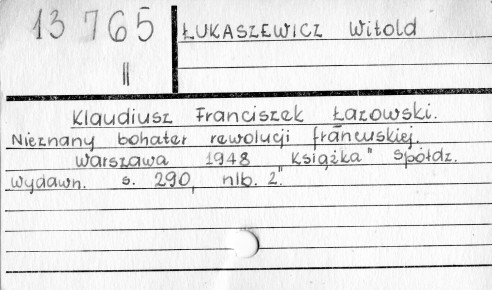 13 765
II
ŁUKASZEWICZ Witold
Klaudiusz Franciszek Łazowski.
Nieznany bohater rewolucji francuskiej.
Warszawa 1948 „Książka" Spółdz.
wydawn. s. 290, nlb. 2.